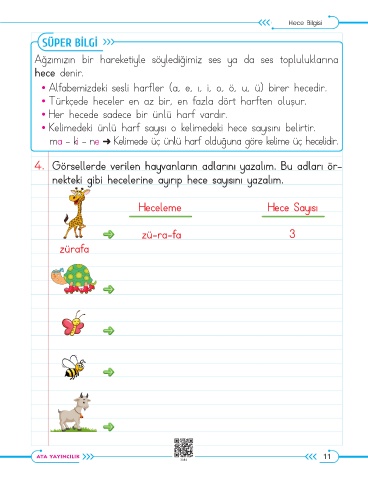 Hece Bilgisi
SÜPER BİLGİ
Ağzımızın bir hareketiyle söylediğimiz ses ya da ses topluluklarına
hece denir.
• Alfabemizdeki sesli harfler (a, e, ı, i, o, ö, u, ü) birer hecedir.
• Türkçede heceler en az bir, en fazla dört harften oluşur.
• Her hecede sadece bir ünlü harf vardır.
• Kelimedeki ünlü harf sayısı o kelimedeki hece sayısını belirtir.
ma - ki - ne ➜ Kelimede üç ünlü harf olduğuna göre kelime üç hecelidir.
4. Görsellerde verilen hayvanların adlarını yazalım. Bu adları ör-
nekteki gibi hecelerine ayırıp hece sayısını yazalım.
Heceleme Hece Sayısı
zü-ra-fa 3
zürafa
ATA YAYINCILIK 11